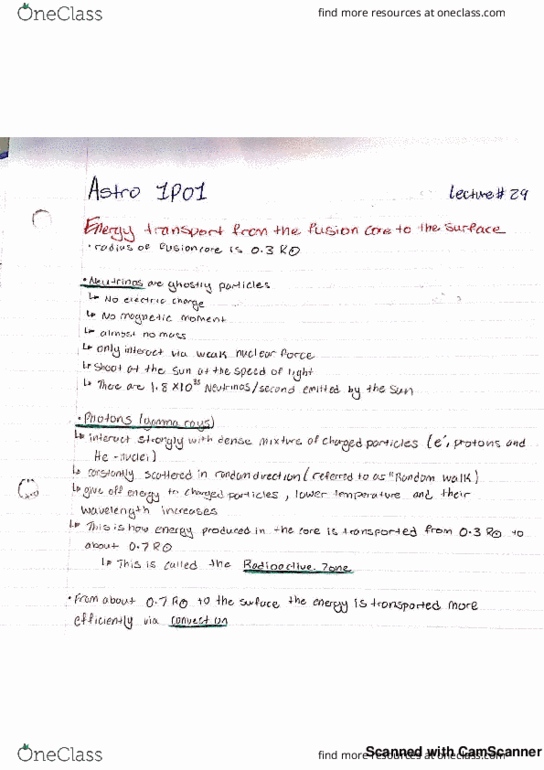 OneClass
find more resources at oneclass.com
Astro 1P01
Lecture# 29
Energy transport from the fusion core to the surface
• radius of fusion core is 0.3 R⊙
• Neutrinos are ghostly particles
↳ No electric charge
↳ No magnetic moment
↳ almost no mass
↳ only interact via weak nuclear force
↳ shoot at the sun at the speed of light
↳ There are 1.8 x10³⁸ Neutrinos/second emitted by the sun
• Photons (gamma rays)
↳ interact strongly with dense mixture of charged particles (e⁻, protons and
He - nuclei)
↳ constantly scattered in random direction (referred to as "Random walk)
↳ give off energy to charged particles, lower temperature and their
wavelength increases
↳ This is how energy produced in the core is transported from 0.3 R⊙ to
about 0.7 R⊙
↳ This is called the Radioactive Zone
• From about 0.7 R⊙ to the surface the energy is transported more
efficiently via convection
OneClass
find more resources at oneclass.com
Scanned with CamScanner